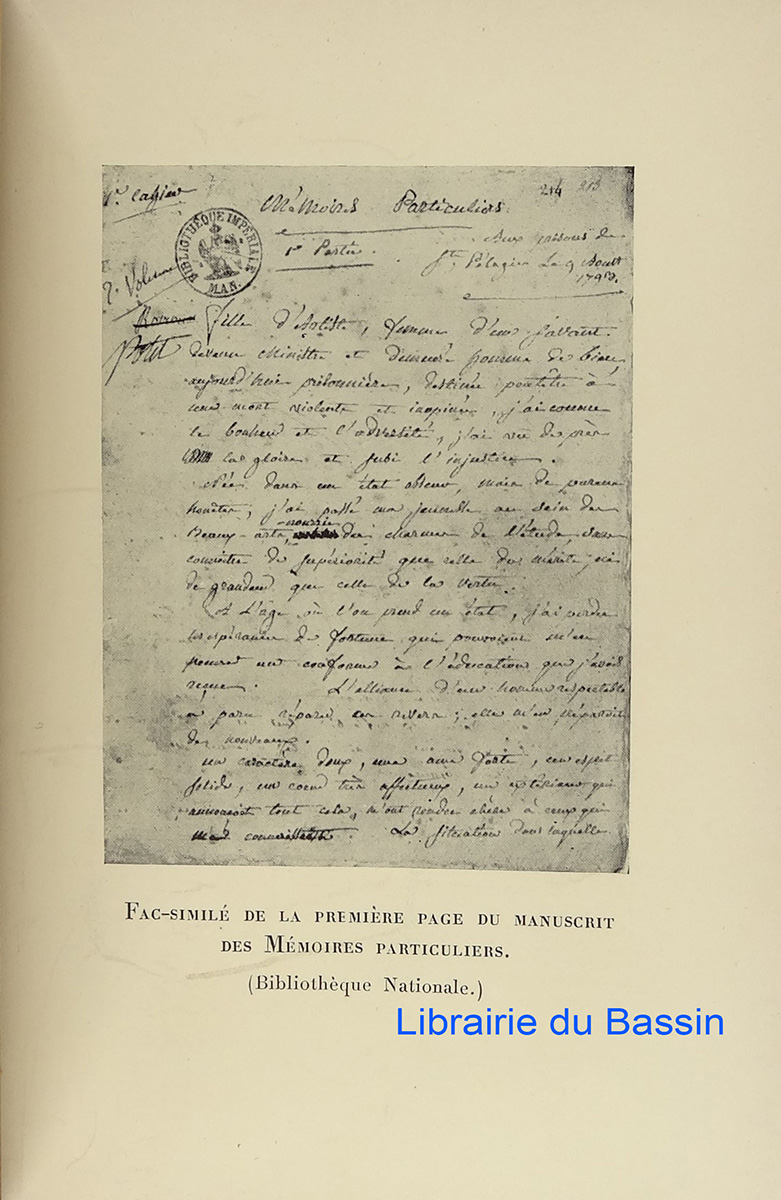 1er Cahier
214 213
Mémoires Particuliers
BIBLIOTHÈQUE IMPÉRIALE
MAN.
1re Partie.
Aux prisons de
Ste Pélagie Le 9 Aoust
1793.
Fille d'Artiste, femme d'un savant
devenu Ministre et demeuré homme de bien,
aujourd'hui prisonnière, destinée peutêtre à
une mort violente et inopinée, j'ai connu
le bonheur et l'adversité, j'ai vu de près
la gloire et subi l'injustice.
Née dans un état obscur, mais de parens
honnêtes, j'ai passé ma jeunesse au sein des
nourrie
Beaux-arts, des charmes de l'étude, sans
connoître de supériorité que celle du mérite, ni
de grandeur que celle de la vertu.
A l'âge où l'on prend un état, j'ai perdu
les espérances de fortune qui pouvoient m'en
procurer un conforme à l'éducation que j'avois
reçue. L'alliance d'un homme respectable
a paru réparer ces revers; elle m'en préparoit
de nouveaux.
un caractère doux, une ame forte, un esprit
solide, un coeur très affectueux, un extérieur qui
annonçoit tout cela, m'ont rendue chère à ceux qui
La situation dans laquelle
FAC-SIMILÉ DE LA PREMIÈRE PAGE DU MANUSCRIT
DES MÉMOIRES PARTICULIERS.
(Bibliothèque Nationale.)
Librairie du Bassin